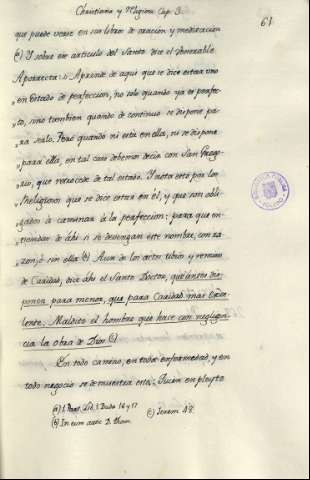 Christiana y Religiosa Cap. 3.
61
que puede verse en su libro de oración y meditación
(a) Y sobre este articulo del Santo dice el Venerable
Aparicio: Aprende de aqui que se dice estar uno
„en Estado de perfeccion, no solo quando ya es perfec-
„to, sino tambien quando de continuo se dispone pa-
„ra serlo. Pero quando ni está en ella, ni se dispone
„para ella, en tal caso debemos decir con San Grego-
„rio, que retrocede de tal estado. Y esto es por los
„Religiosos que se dice estar en él, y que son obli-
„gados a caminar á la perfeccion: para que en-
„tiendan de ahi si se devengan este nombre, con ra-
„zon, ó sin ella (b) Aun de los actos tibios y remisos
de Caridad, dice ahi el Santo Doctor, que antes dis-
ponen para menor, que para Caridad mas exce-
lente. Maldito el hombre que hace con negligen-
cia la obra de Dios. (c)
En todo camino, en toda enfermedad, y en
todo negocio se demuestra esto. Quien en pleyto
(a) 1. Part. Lib. 1. Duda 16 y 17
(b) In eum artic. D. Thom.
(c) Jerem. 48.